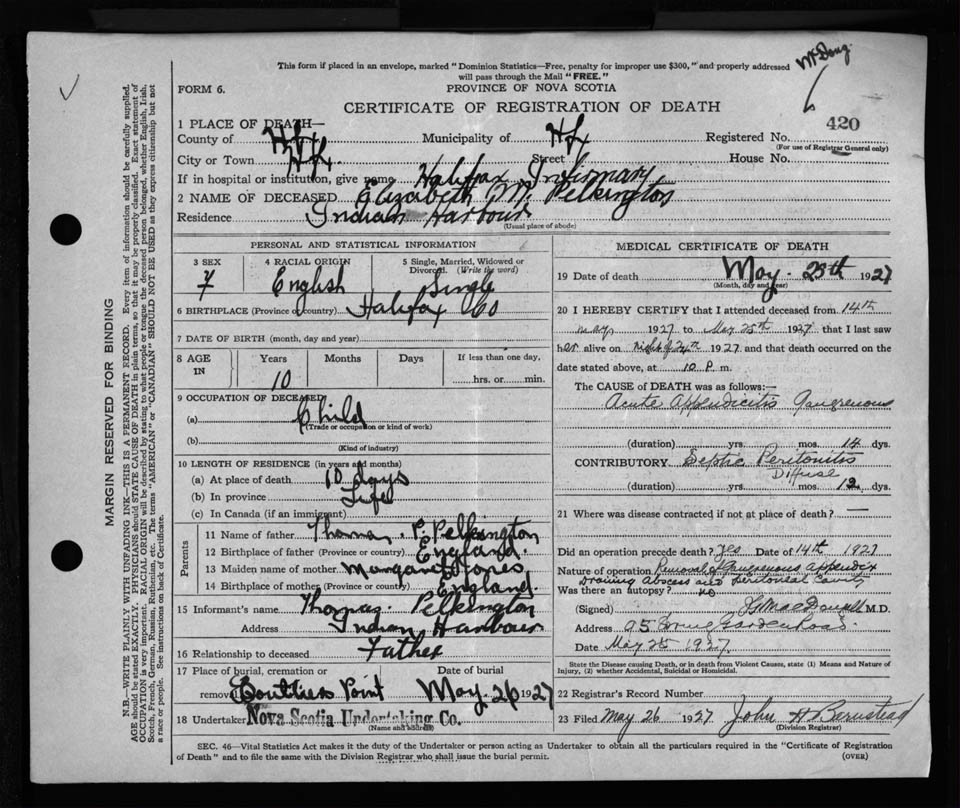 McDoug
This form if placed in an envelope, marked "Dominion Statistics—Free, penalty for improper use $300," and properly addressed
will pass through the Mail "FREE."
FORM 6.
PROVINCE OF NOVA SCOTIA
CERTIFICATE OF REGISTRATION OF DEATH
420
1 PLACE OF DEATH—
County of Hfx Municipality of Hfx Registered No.
(For use of Registrar General only)
City or Town Hfx. Street House No.
If in hospital or institution, give name Halifax Infirmary
2 NAME OF DECEASED Elizabeth M. Pelkington
Residence Indian Harbour
(Usual place of abode)
PERSONAL AND STATISTICAL INFORMATION
3 SEX F
4 RACIAL ORIGIN English
5 Single, Married, Widowed or Divorced. (Write the word) Single
6 BIRTHPLACE (Province or country) Halifax Co
7 DATE OF BIRTH (month, day and year)
8 AGE IN Years Months Days If less than one day,
10 hrs. or min.
9 OCCUPATION OF DECEASED
(a) Child
(Trade or occupation or kind of work)
(b)
(Kind of industry)
10 LENGTH OF RESIDENCE (in years and months)
(a) At place of death 10 days
(b) In province Life
(c) In Canada (if an immigrant)
Parents
11 Name of father Thomas P. Pelkington
12 Birthplace of father (Province or country) England.
13 Maiden name of mother Margaret Jones
14 Birthplace of mother (Province or country) England.
15 Informant's name Thomas Pelkington
Address Indian Harbour
16 Relationship to deceased Father
17 Place of burial, cremation or removal Boutliers Point Date of burial May 26 1927
18 Undertaker Nova Scotia Undertaking Co.
(Name and address)
MEDICAL CERTIFICATE OF DEATH
19 Date of death May 25th 1927
(Month, day and year)
20 I HEREBY CERTIFY that I attended deceased from 14th
May 1927 to May 25th 1927 that I last saw
her alive on night of 24th 1927 and that death occurred on
date stated above, at 10 P. m.
The CAUSE of DEATH was as follows:—
Acute Appendicitis Gangrenous
(duration) yrs. mos. 14 dys.
CONTRIBUTORY Septic Peritonitis
Diffuse
(duration) yrs. mos. 12 dys.
21 Where was disease contracted if not at place of death? —
Did an operation precede death? Yes Date of 14th 1927
Nature of operation Removal of Gangrenous appendix
Draining abscess and peritoneal cavity
Was there an autopsy? no
(Signed) MacDougall M.D.
Address 95 Spring Garden Road.
Date May 25 1927.
State the Disease causing Death, or in death from Violent Causes, state (1) Means and Nature of
Injury, (2) whether Accidental, Suicidal or Homicidal.
22 Registrar's Record Number
23 Filed May 26 1927 John H Barnstead
(Division Registrar)
SEC. 46—Vital Statistics Act makes it the duty of the Undertaker or person acting as Undertaker to obtain all the particulars required in the "Certificate of Registration
of Death" and to file the same with the Division Registrar who shall issue the burial permit.
(OVER)
MARGIN RESERVED FOR BINDING
N.B.—WRITE PLAINLY WITH UNFADING INK—THIS IS A PERMANENT RECORD. Every item of information should be carefully supplied.
AGE should be stated EXACTLY. PHYSICIANS should STATE CAUSE OF DEATH in plain terms, so that it may be properly classified. Exact statement of
OCCUPATION is very important. RACIAL ORIGIN will be described by stating to what people or tongue the deceased person belonged, whether English, Irish,
Scotch, French, German, Russian, Ruthenian, etc. The terms "AMERICAN" or "CANADIAN" SHOULD NOT BE USED as they express citizenship but not
a race or people. See instructions on back of Certificate.